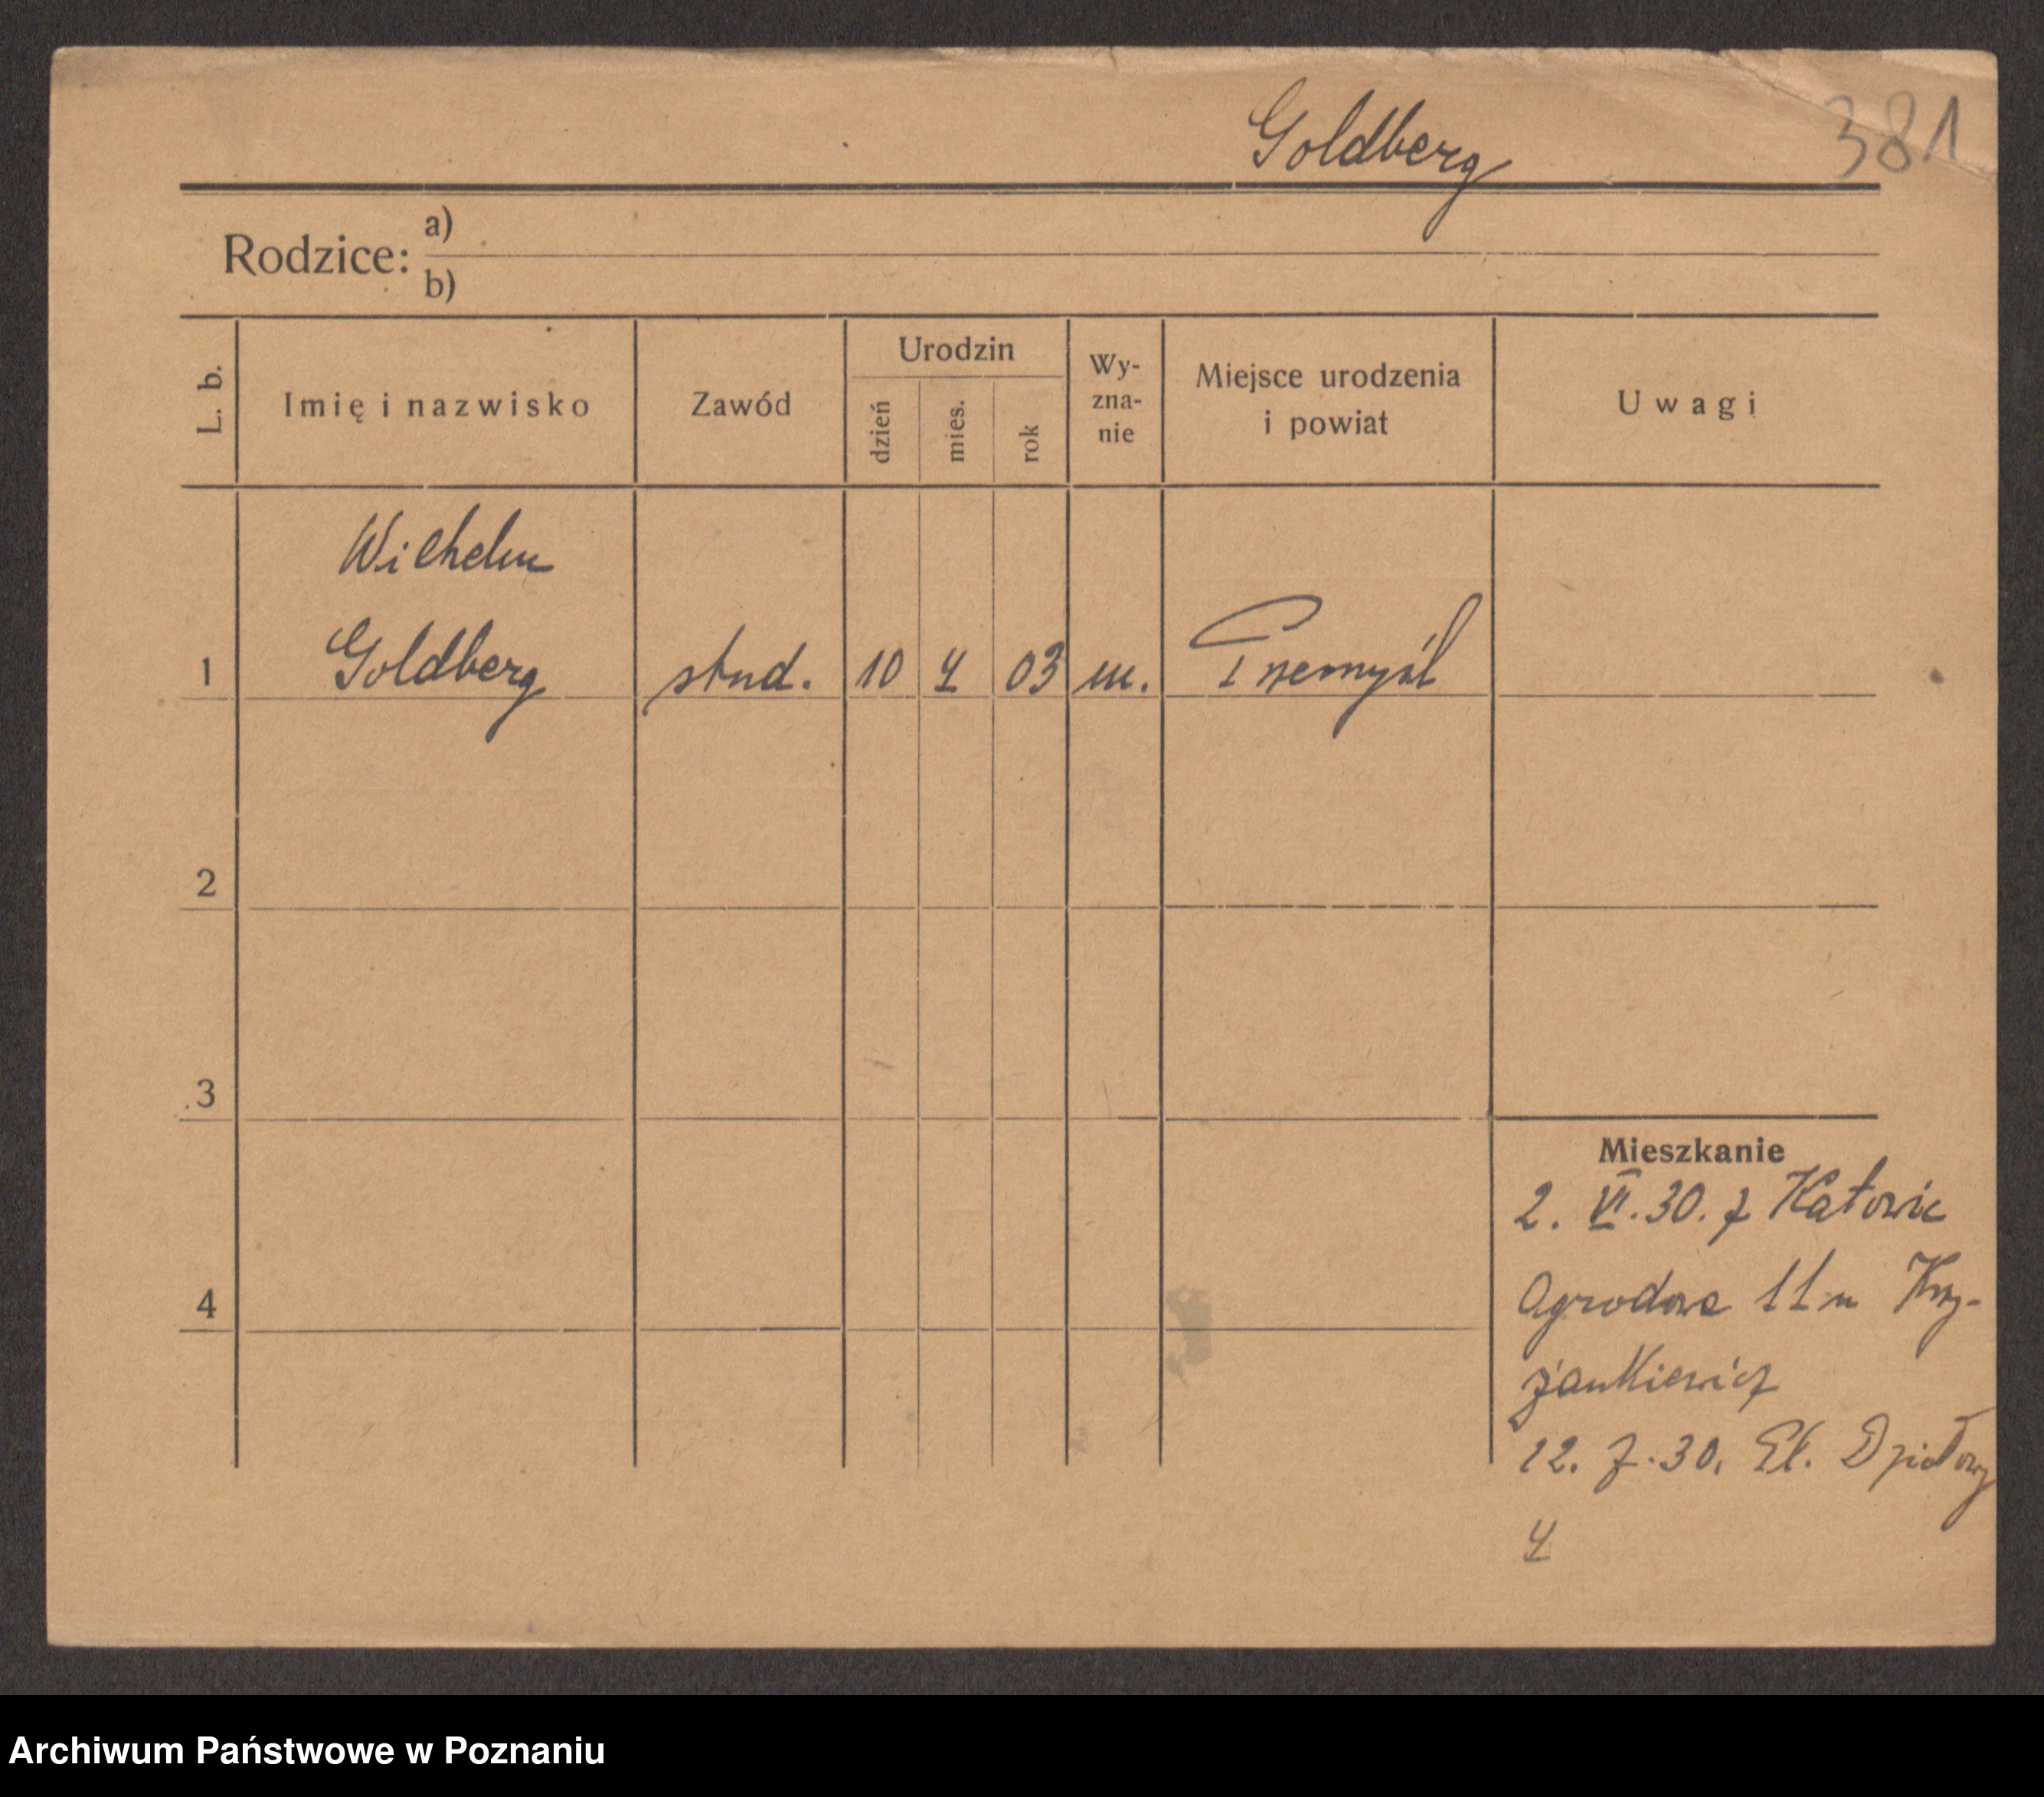 Goldberg 381
Rodzice: a)
b)
L. b. Imię i nazwisko Zawód Urodzin dzień mies. rok Wy-zna-nie Miejsce urodzenia i powiat Uwagi
Wilhelm
1 Goldberg stud. 10 4 03 m. Przemyśl
2
3
Mieszkanie
2. VI. 30. z Katowic
4 Ogrodowa 11 m Krzy-
żankiewicz
12. 7. 30. Działowy
4
Archiwum Państwowe w Poznaniu